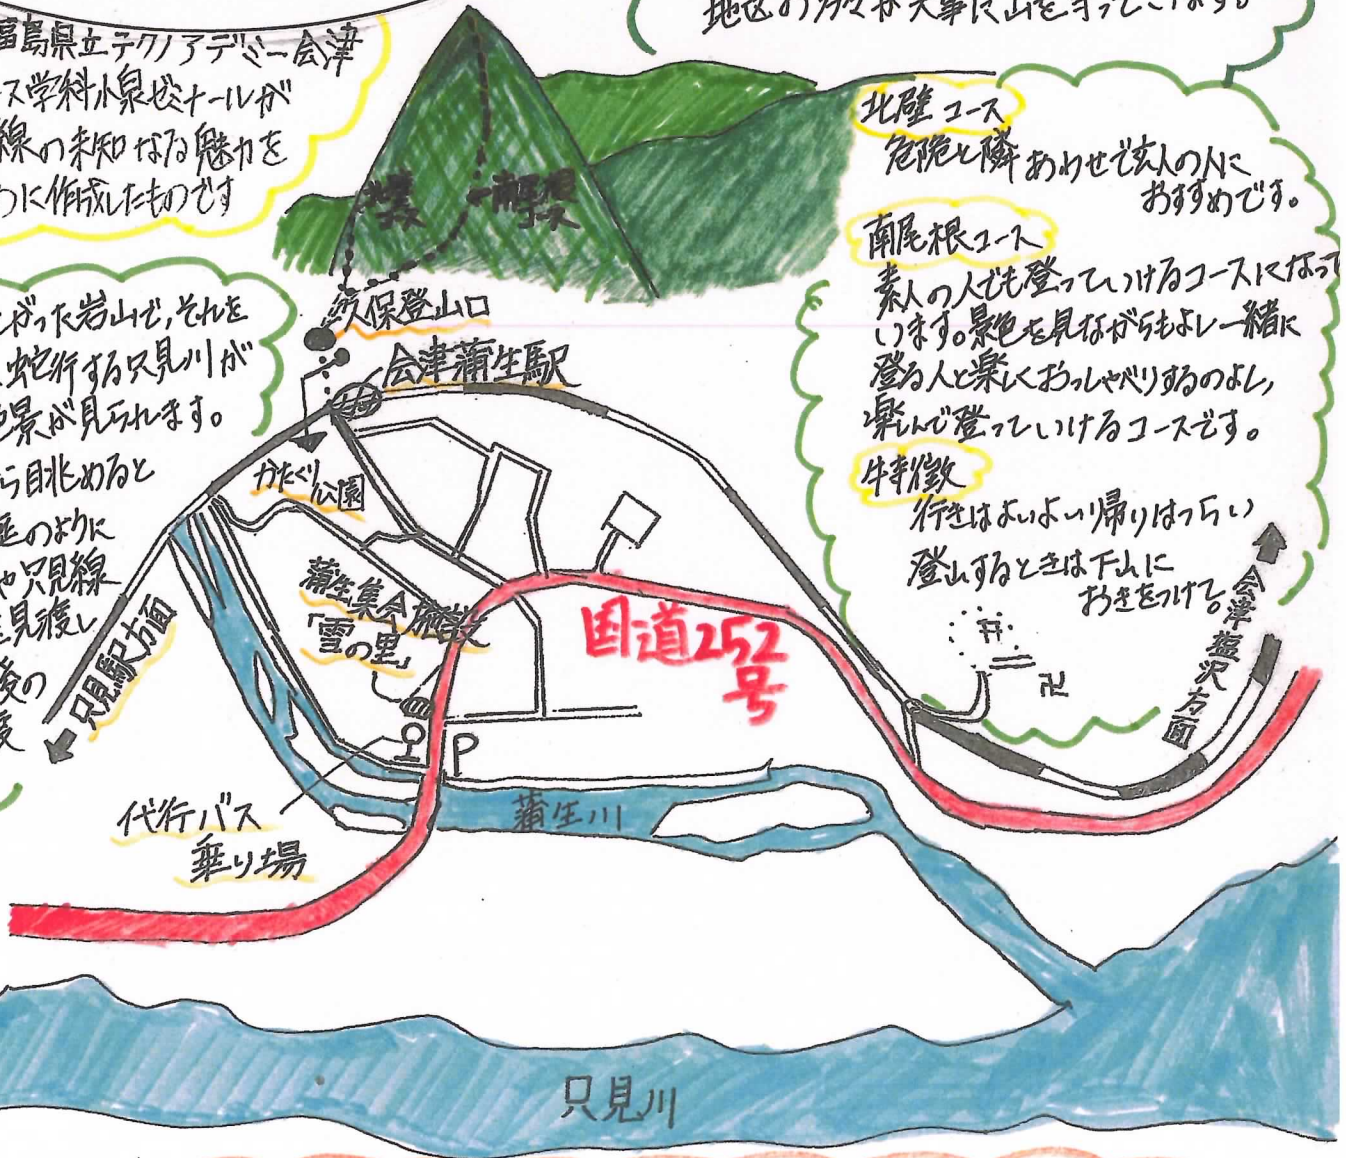 地区の方々が大事に山を守っています。
福島県立テクノアデミー会津
ス学科小泉ゼミナールが
線の未知なる魅力を
に作成したものです
北壁コース
危険と隣あわせで玄人の人に
おすすめです。
南尾根コース
素人の人でも登っていけるコースになって
います。景色を見ながらもよし一緒に
登る人と楽しくおっしゃべりするのよし、
楽しんで登っていけるコースです。
特徴
行きはよいよい帰りはつらい
登山するときは下山に
おきをつけて。
がった岩山で、それを
蛇行する只見川が
景が見られます。
ら眺めると
のように
や只見線
見渡し
の
久保登山口
会津蒲生駅
かたくり
公園
蒲生集会施設
「雪の里」
国道252
号
只見駅方面
会津塩沢方面
卍
P
代行バス
乗り場
蒲生川
只見川